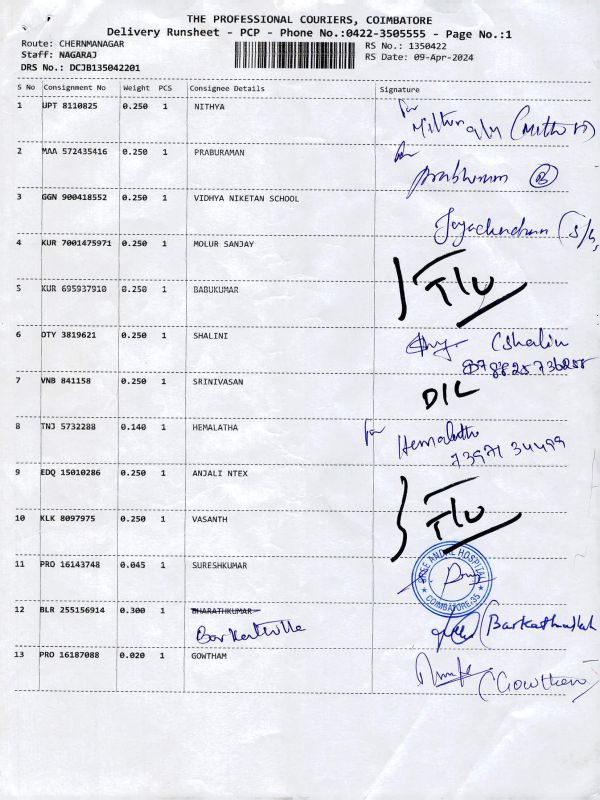 THE PROFESSIONAL COURIERS, COIMBATORE
Delivery Runsheet - PCP - Phone No.:0422-3505555 - Page No.:1
Route: CHERNMANAGAR
RS No.: 1350422
Staff: NAGARAJ
RS Date: 09-Apr-2024
DRS No.: DCJB135042201
S No Consignment No Weight PCS Consignee Details Signature
1 UPT 8110825 0.250 1 NITHYA for
2 MAA 572435416 0.250 1 PRABURAMAN for
3 GGN 900418552 0.250 1 VIDHYA NIKETAN SCHOOL
4 KUR 7001475971 0.250 1 MOLUR SANJAY
5 KUR 695937910 0.250 1 BABUKUMAR
6 OTY 3819621 0.250 1 SHALINI
7 VNB 841158 0.250 1 SRINIVASAN D/L
8 TNJ 5732288 0.140 1 HEMALATHA for Hemalatha
73971 34499
9 EDQ 15010286 0.250 1 ANJALI NTEX
10 KLK 8097975 0.250 1 VASANTH
11 PRO 16143748 0.045 1 SURESHKUMAR
HOSPITAL
COIMBATORE-35
12 BLR 255156914 0.300 1 BHARATHKUMAR
Barkathulla (Barkathullah
13 PRO 16187088 0.020 1 GOWTHAM (Gowtham)